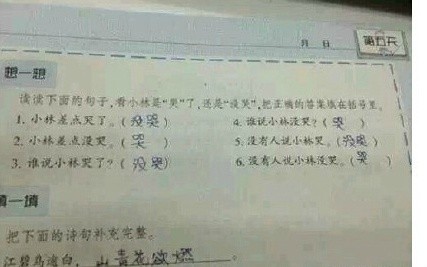 月 日 第五天
想一想
读读下面的句子,看小林是“哭”了,还是“没哭”,把正确的答案填在括号里。
1. 小林差点哭了。(没哭) 4. 谁说小林没哭?(哭)
2. 小林差点没哭。(哭) 5. 没有人说小林哭。(没哭)
3. 谁说小林哭了?(没哭) 6. 没有人说小林没哭。(哭)
填一填
把下面的诗句补充完整。
江碧鸟逾白, 山青花欲燃。